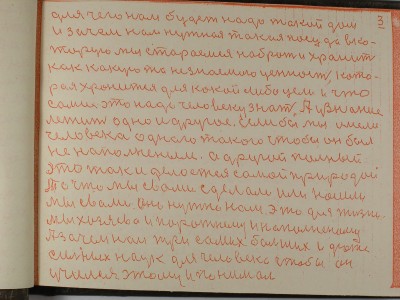 3
для чего нам будет надо такой дом
и зачем нам нужная такая посуда в ко-
торую мы стараемся набрать и хранить
как какую то незнаемого ценность, кото-
рая хранится для какой либо цели и что
самое это надо человеку знать. А в знание
одно и другое. Если бы мы имели
человека одного такого чтобы он был
не наполненным. а другой полный
это так и делается самой природой
То что мы с вами сделали или нашли
мы с вами оно нужно нам. Это для жизни.
мы хозяева и порожнему и наполненному
А зачем нам три самих больших и
наук для человека чтобы он
учился этому и понимал